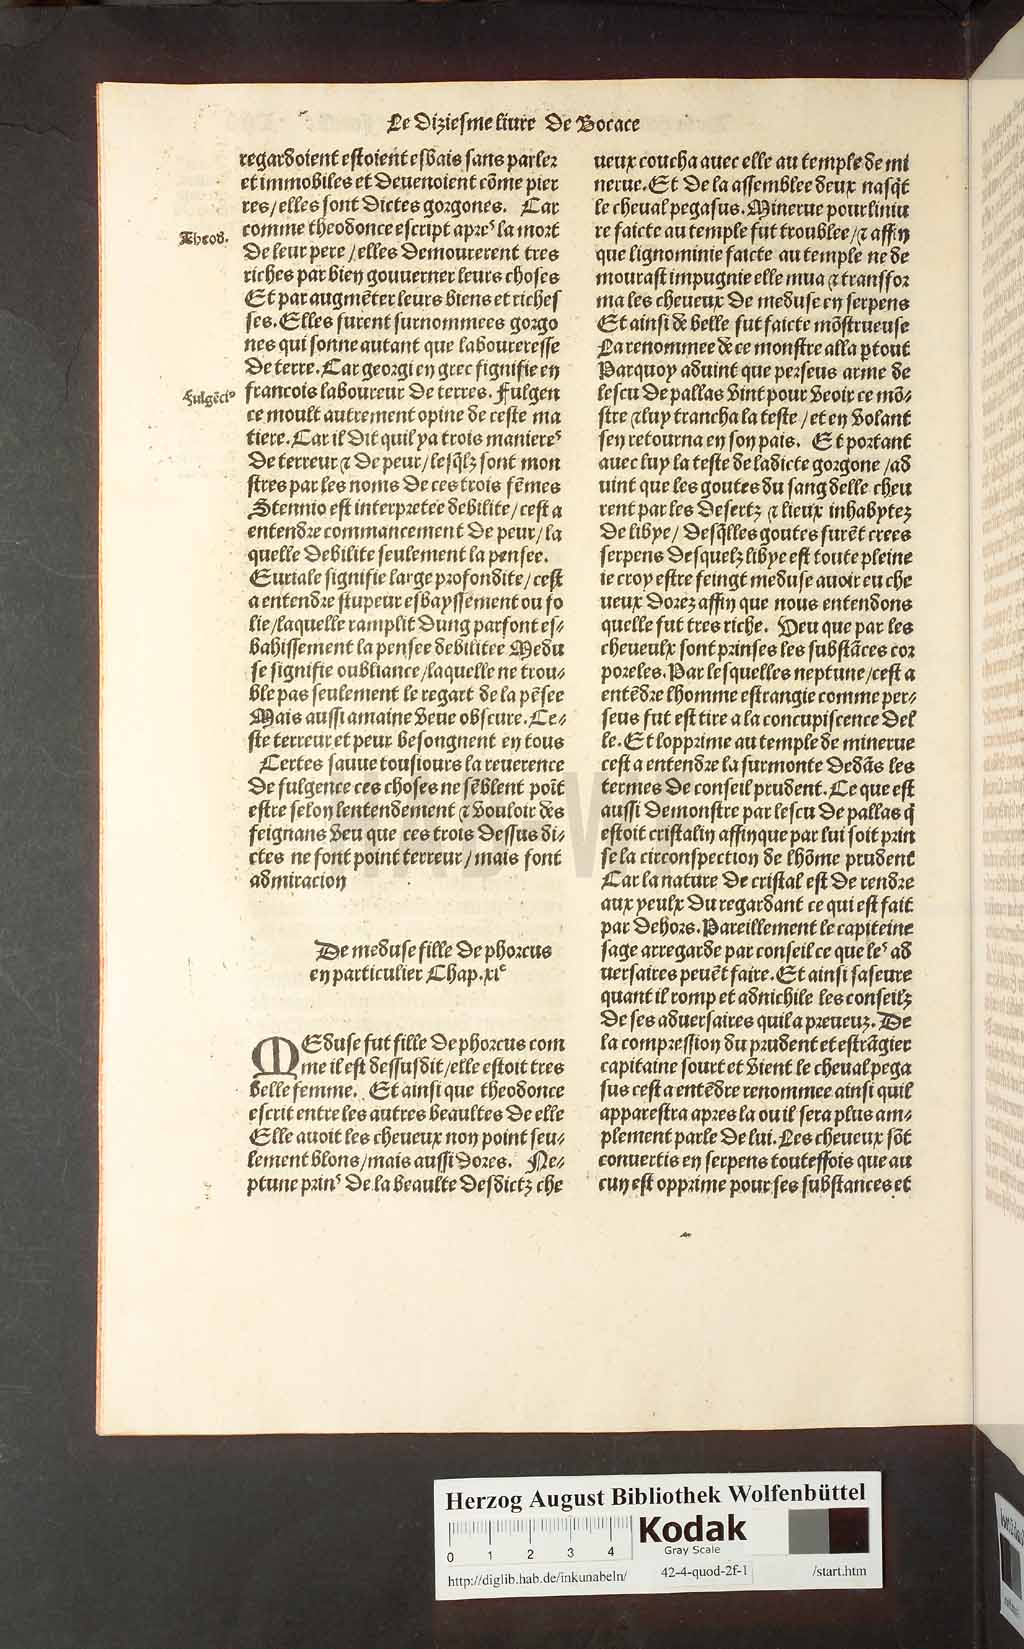 Le Diziesme liure De Bocace
regardoient estoient esbais sans parler
et immobiles et deuenoient cõme pier
res/elles sont dictes gorgones. Car
Theod.
comme theodonce escript apreˢ la mort
de leur pere/elles demourerent tres
riches par bien gouuerner leurs choses
Et par augmẽter leurs biens et riches
ses. Elles furent surnommees gorgo
nes qui sonne autant que laboureresse
de terre. Car georgi en grec signifie en
Fulgẽciꝰ
francois laboureur de terres. Fulgen
ce moult autrement opine de ceste ma
tiere. Car il dit quil ya trois maniereˢ
de terreur ⁊ de peur/lesq̃lz sont mon
stres par les noms de ces trois fẽmes
Stennio est interpretee debilite/cest a
entendre commancement de peur/la
quelle debilite seulement la pensee.
Euriale signifie large profondite/cest
a entendre stupeur esbayssement ou fo
lie/laquelle ramplit dung parfont es⸗
bahissement la pensee debilitee Medu
se signifie oubliance/laquelle ne trou⸗
ble pas seulement le regart de la pẽsee
Mais aussi amaine veue obscure. Ce⸗
ste terreur et peur besongnent en tous
Certes sauue tousiours la reuerence
de fulgence ces choses ne sẽblent poĩt
estre selon lentendement ⁊ vouloir des
feignans veu que ces trois dessus di⸗
ctes ne font point terreur/mais font
admiracion
De meduse fille de phorcus
en particulier Chap.xiᵉ
MEduse fut fille de phorcus com
me il est dessusdit/elle estoit tres
belle femme. Et ainsi que theodonce
escrit entre les autres beaultes de elle
Elle auoit les cheueux non point seu⸗
lement blons/mais aussi dores. Ne⸗
ptune prinˢ de la beaulte desdictz che
ueux coucha auec elle au temple de mi
nerue. Et de la assemblee deux nasq̃t
le cheual pegasus. Minerue pour liniu
re faicte au temple fut troublee/⁊ affin
que lignominie faicte au temple ne de
mourast impugnie elle mua ⁊ transfor
ma les cheueux de meduse en serpens
Et ainsi de belle fut faicte mõstrueuse
La renommee de ce monstre alla ptout
Parquoy aduint que perseus arme de
lescu de pallas vint pour veoir ce mõ⸗
stre ⁊ luy trancha la teste/et en volant
sen retourna en son pais. Et portant
auec luy la teste de ladicte gorgone/ad
uint que les goutes du sang delle cheu
rent par les desertz ⁊ lieux inhabytez
de libye/desq̃lles goutes furẽt crees
serpens desquelz libye est toute pleine
ie croy estre feingt meduse auoir eu che
ueux dorez affin que nous entendons
quelle fut tres riche. Veu que par les
cheueulx sont prinses les substãces cor
poreles. Par lesquelles neptune/cest a
entẽdre lhomme estrangie comme per⸗
seus fut est tire a la concupiscence del
le. Et lopprime au temple de minerue
cest a entendre la surmonte dedãs les
termes de conseil prudent. Ce que est
aussi demonstre par lescu de pallas q̃
estoit cristalin affinque par lui soit prin
se la circonspection de lhõme prudent
Car la nature de cristal est de rendre
aux yeulx du regardant ce qui est fait
par dehors. Pareillement le capiteine
sage arregarde par conseil ce que leˢ ad
uersaires peuẽt faire. Et ainsi saseure
quant il romp et adnichile les conseilz
de ses aduersaires quil a preueuz. De
la compression du prudent et estrãgier
capitaine sourt et vient le cheual pega
sus cest a entẽdre renommee ainsi quil
apparestra apres la ou il sera plus am⸗
plement parle de lui. Les cheueux sõt
conuertis en serpens touteffois que au
cun est opprime pour ses substances et
Herzog August Bibliothek Wolfenbüttel
0 1 2 3 4
Kodak
Gray Scale
http://diglib.hab.de/inkunabeln/ 42-4-quod-2f-1 /start.htm